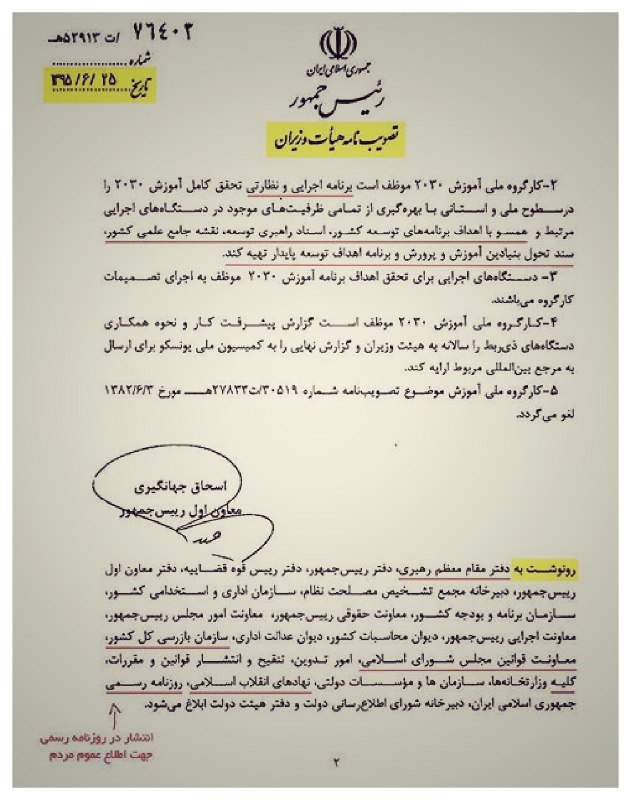 ۷۶۴۰۲ /ت ۵۲۹۱۳هـ
شماره
تاریخ ۱۳۹۵/۶/۲۵
جمهوری اسلامی ایران
رئیس جمهور
تصویب نامه هیأت وزیران
۲-کارگروه ملی آموزش ۲۰۳۰ موظف است برنامه اجرایی و نظارتی تحقق کامل آموزش ۲۰۳۰ را
درسطوح ملی و استانی با بهره‌گیری از تمامی ظرفیت‌های موجود در دستگاه‌های اجرایی
مرتبط و همسو با اهداف برنامه‌های توسعه کشور، اسناد راهبری توسعه، نقشه جامع علمی کشور،
سند تحول بنیادین آموزش و پرورش و برنامه اهداف توسعه پایدار تهیه کند.
۳- دستگاه‌های اجرایی برای تحقق اهداف برنامه آموزش ۲۰۳۰ موظف به اجرای تصمیمات
کارگروه می‌باشند.
۴-کارگروه ملی آموزش ۲۰۳۰ موظف است گزارش پیشرفت کار و نحوه همکاری
دستگاه‌های ذی‌ربط را سالانه به هیئت وزیران و گزارش نهایی را به کمیسیون ملی یونسکو برای ارسال
به مرجع بین‌المللی مربوط ارایه کند.
۵-کارگروه ملی آموزش موضوع تصویب‌نامه شماره ۳۰۵۱۹/ت۲۷۸۳۳هـ مورخ ۱۳۸۲/۶/۳
لغو می‌گردد.
اسحاق جهانگیری
معاون اول رییس‌جمهور
رونوشت به دفتر مقام معظم رهبری، دفتر رییس‌جمهور، دفتر رییس قوه قضاییه، دفتر معاون اول
رییس‌جمهور، دبیرخانه مجمع تشخیص مصلحت نظام، سازمان اداری و استخدامی کشور،
سازمان برنامه و بودجه کشور، معاونت حقوقی رییس‌جمهور، معاونت امور مجلس رییس‌جمهور،
معاونت اجرایی رییس‌جمهور، دیوان محاسبات کشور، دیوان عدالت اداری، سازمان بازرسی کل کشور،
معاونت قوانین مجلس شورای اسلامی، امور تدوین، تنقیح و انتشار قوانین و مقررات،
کلیه وزارتخانه‌ها، سازمان ها و مؤسسات دولتی، نهادهای انقلاب اسلامی، روزنامه رسمی
جمهوری اسلامی ایران، دبیرخانه شورای اطلاع‌رسانی دولت و دفتر هیئت دولت ابلاغ می‌شود.
انتشار در روزنامه رسمی
جهت اطلاع عموم مردم
۲